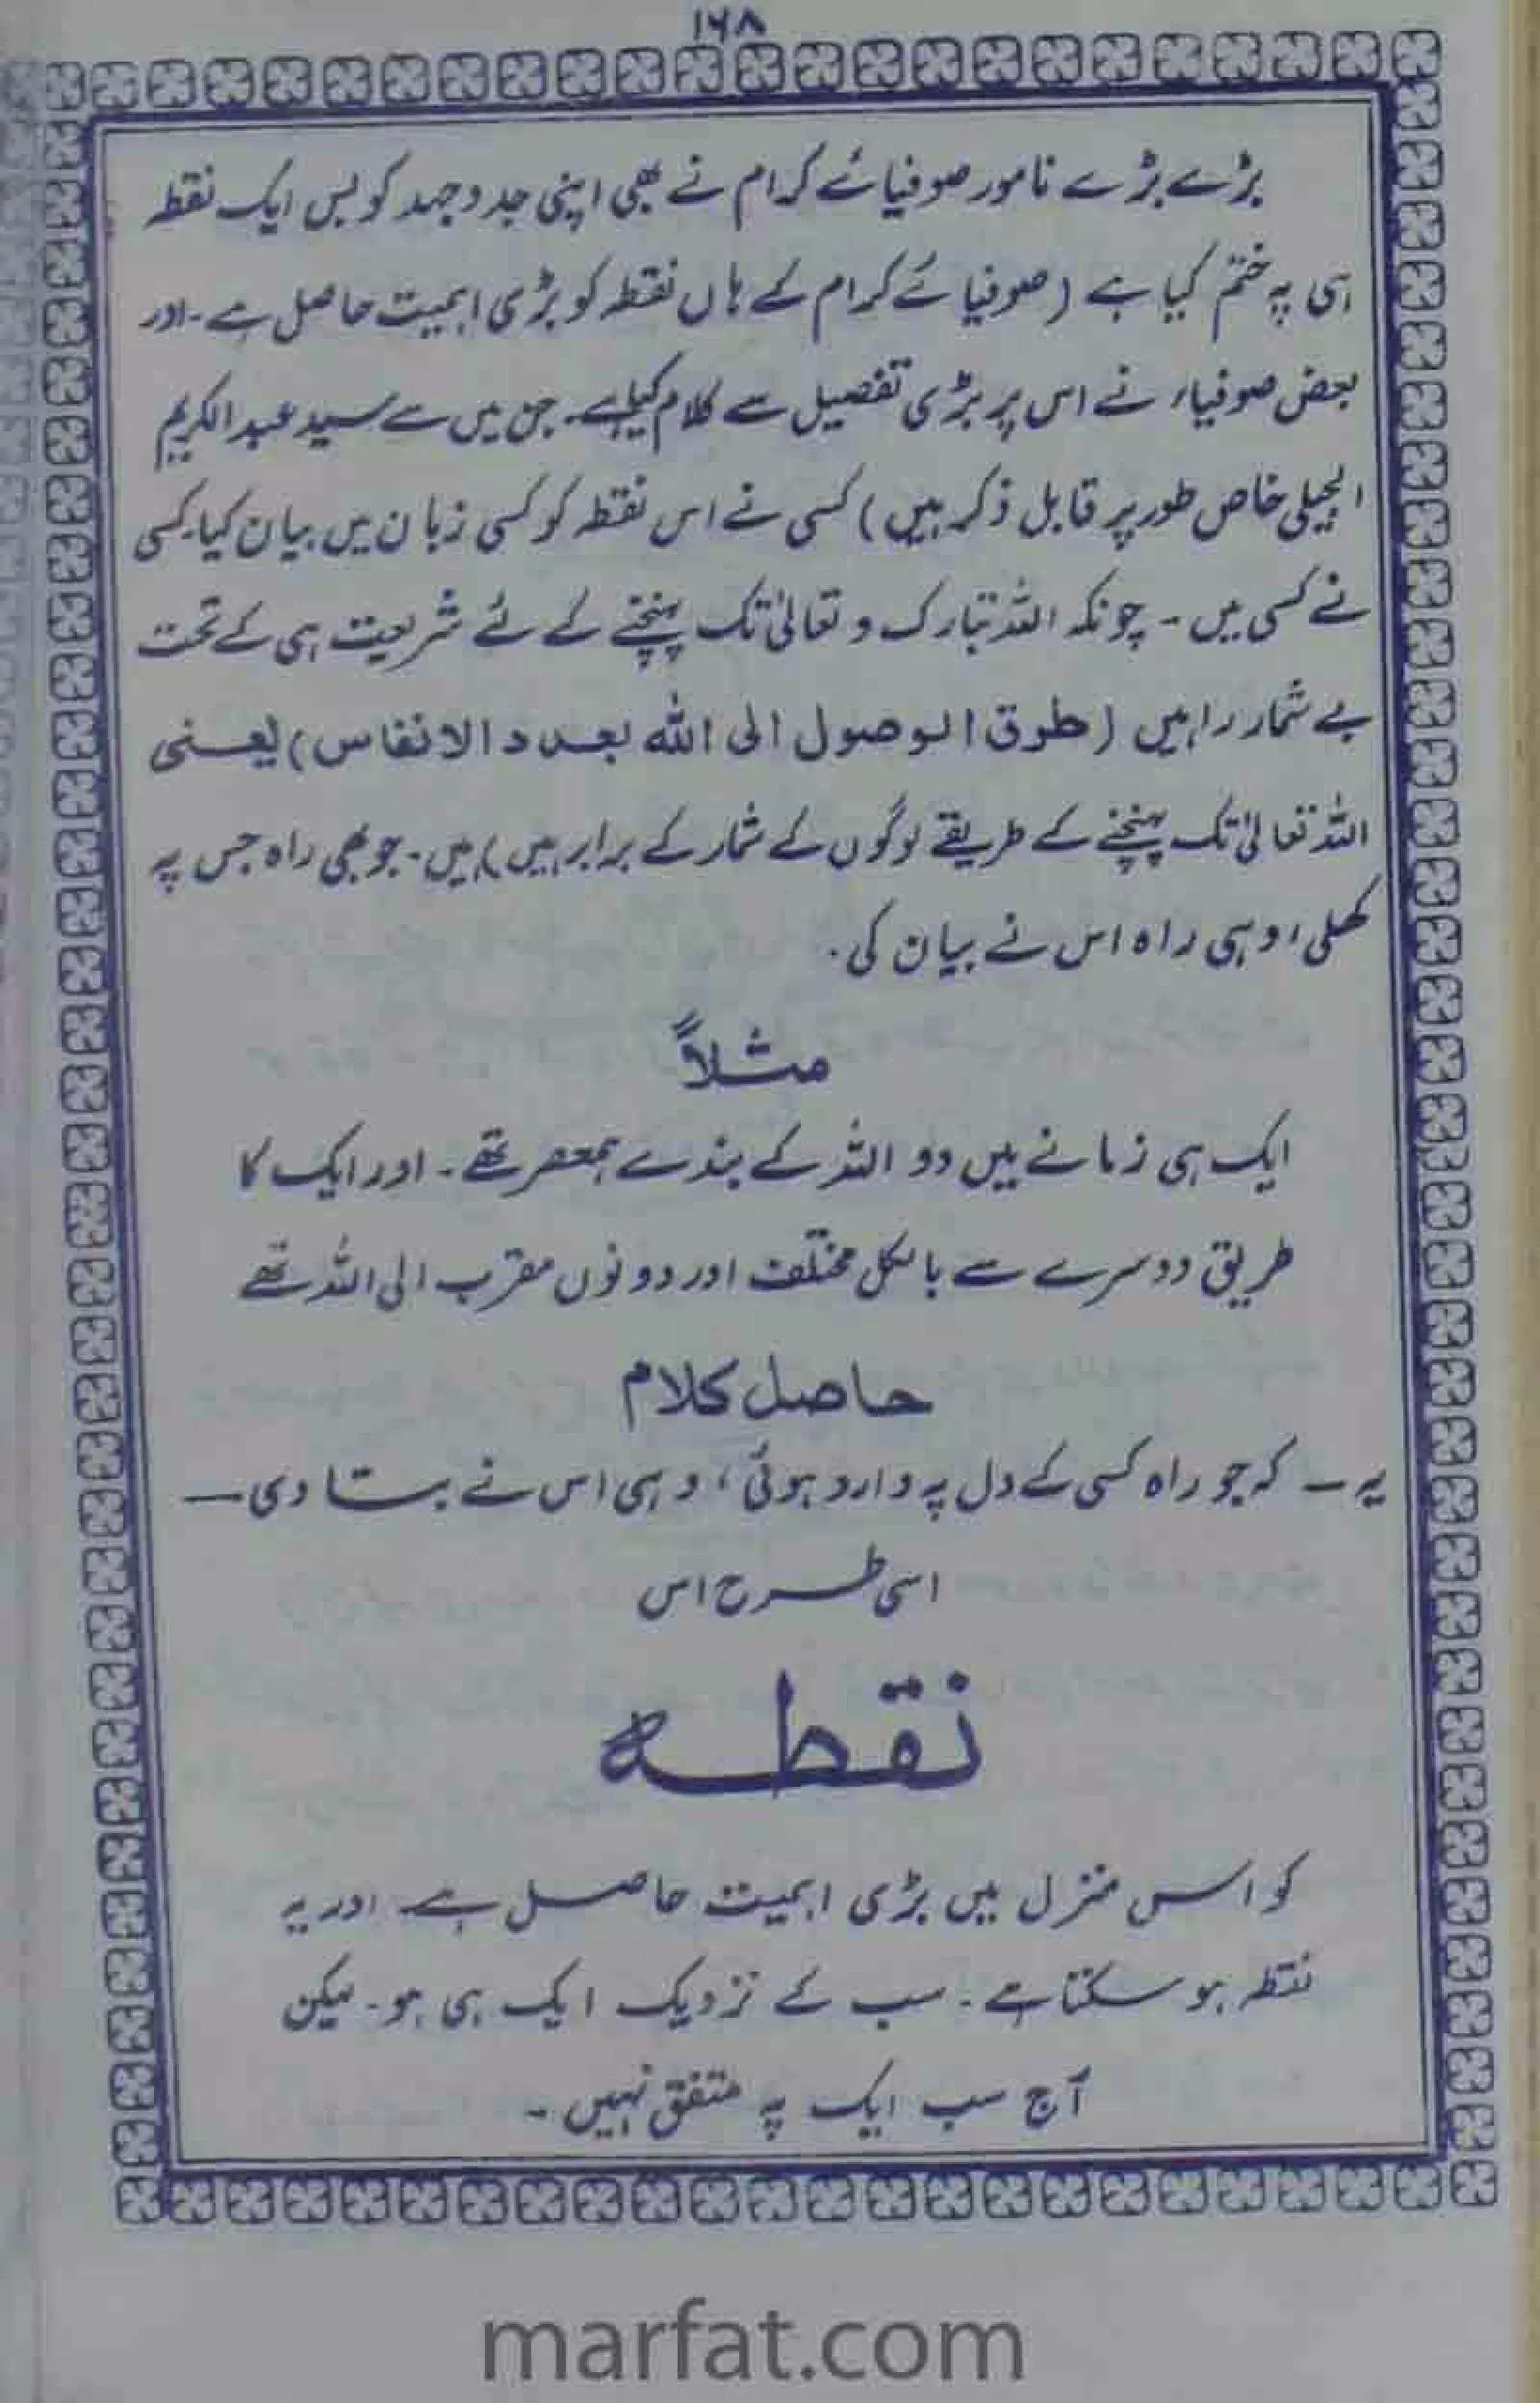 ۱۶۸
بڑے بڑے نامور صوفیائے کرام نے بھی اپنی جدوجہد کو بس ایک نقطہ
ہی پہ ختم کیا ہے (صوفیائے کرام کے ہاں نقطہ کو بڑی اہمیت حاصل ہے۔ اور
بعض صوفیاء نے اس پر بڑی تفصیل سے کلام کیا ہے۔ جن میں سے سید عبدالکریم
الجیلی خاص طور پر قابل ذکر ہیں) کسی نے اس نقطہ کو کسی زبان میں بیان کیا۔ کسی
نے کسی میں ۔ چونکہ اللہ تبارک و تعالیٰ تک پہنچنے کے لئے شریعت ہی کے تحت
بے شمار راہیں (طرق الوصول الی اللہ بعدد الانفاس) یعنی
اللہ تعالیٰ تک پہنچنے کے طریقے لوگوں کے شمار کے برابر ہیں) ہیں۔ جو بھی راہ جس پہ
کھلی، وہی راہ اس نے بیان کی۔
مثلاً
ایک ہی زمانے میں دو اللہ کے بندے ہمعصر تھے۔ اور ایک کا
طریق دوسرے سے بالکل مختلف اور دونوں مقرب الی اللہ تھے
حاصل کلام
یہ ۔ کہ جو راہ کسی کے دل پہ وارد ہوئی، وہی اس نے بتا دی ۔
اسی طرح اس
نقطہ
کو اس منزل میں بڑی اہمیت حاصل ہے۔ اور یہ
نقطہ ہو سکتا ہے ۔ سب کے نزدیک ایک ہی ہو۔ لیکن
آج سب ایک پہ متفق نہیں ۔
marfat.com